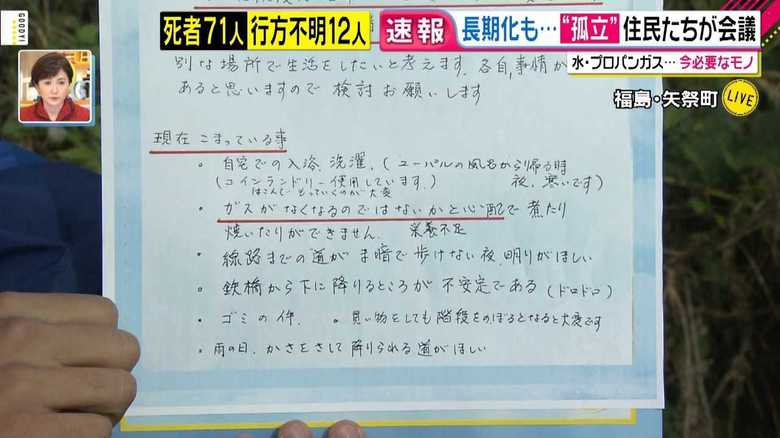 GOODY!
死者71人 行方不明12人
速報
長期化も…“孤立”住民たちが会議
水・プロパンガス…今必要なモノ
福島・矢祭町
LIVE
別な場所で生活をしたいと考えます。各自、事情が
あると思いますので 検討お願いします
現在 こまっている事
・自宅での入浴、洗濯、(ユーパルの風呂から帰る時
(コインランドリー使用しています。) 夜、寒いです)
はこんで とっていくのが大変
・ガスがなくなるのではないかと心配で煮たり
焼いたりができません。 栄養不足
・線路までの道がま暗で歩けない夜、明りがほしい
・鉄橋から下に降りるところが不安定である(ドロドロ)
・ゴミの件。 ・買い物をしても階段をのぼるとなると大変です
・雨の日、かさをさして降りられる道がほしい